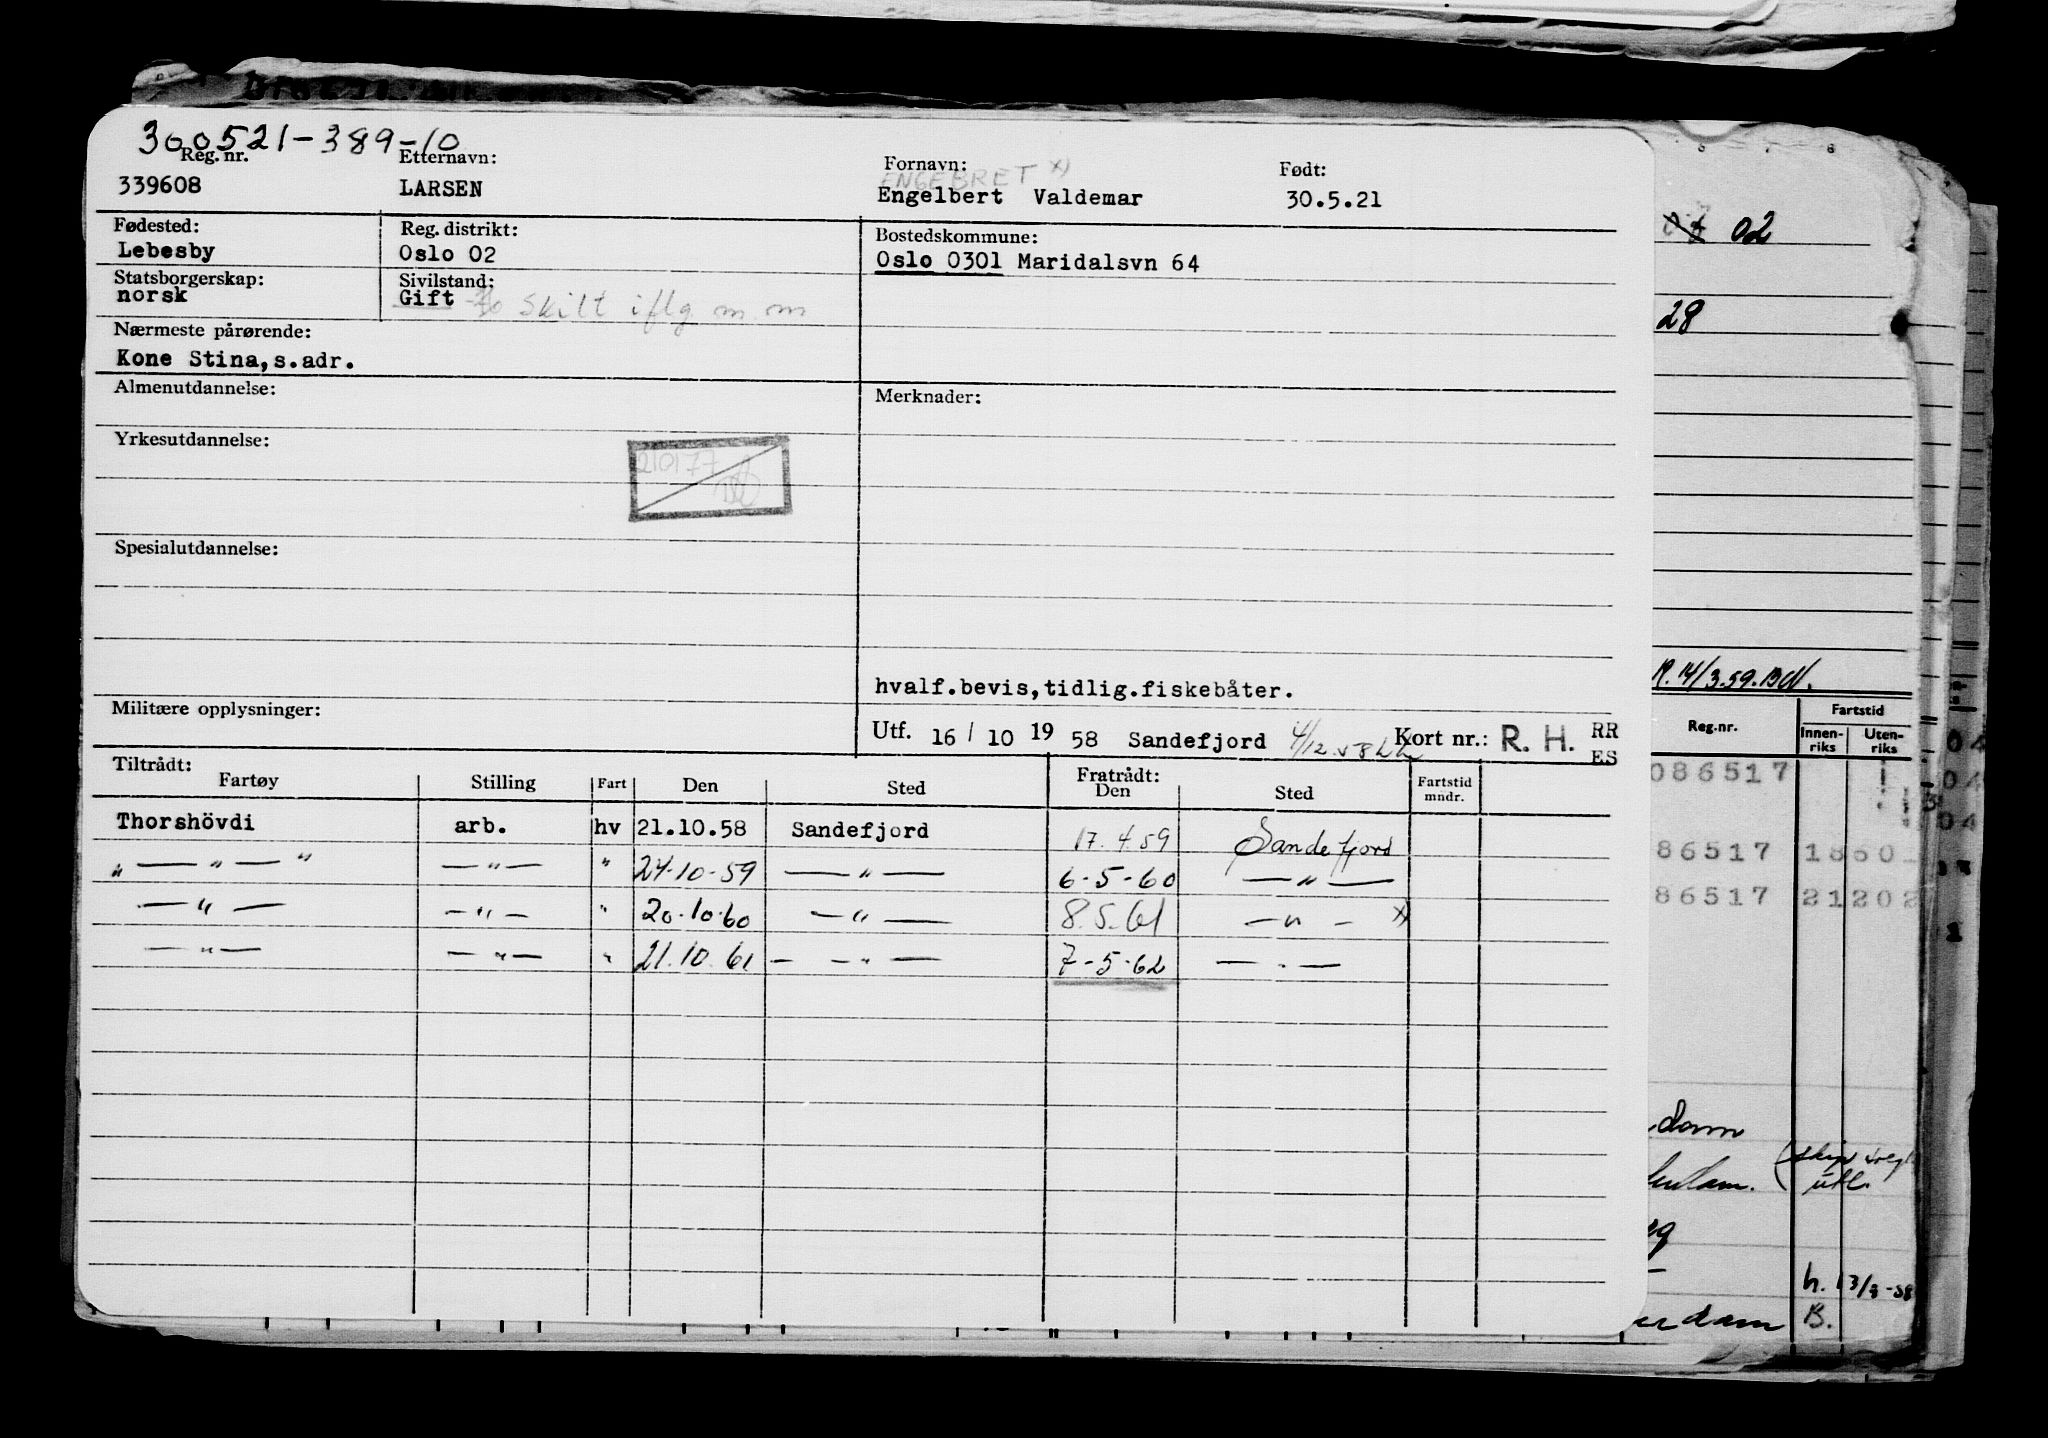 300521-389-10
Reg. nr. Etternavn: Fornavn: Født:
ENGEBRET x)
339608 LARSEN Engelbert Valdemar 30.5.21
Fødested: Reg. distrikt: Bostedskommune:
Lebesby Oslo 02 Oslo 0301 Maridalsvn 64
Statsborgerskap: Sivilstand:
norsk Gift skilt iflg m m
Nærmeste pårørende:
Kone Stina,s.adr.
Almenutdannelse: Merknader:
Yrkesutdannelse:
210177
Spesialutdannelse:
hvalf.bevis,tidlig.fiskebåter.
Militære opplysninger: Utf. 16/10 1958 Sandefjord 4/12.58 Kort nr.: R. H. RR
ES
Tiltrådt: Fratrådt:
Fartøy Stilling Fart Den Sted Den Sted Fartstid
mndr.
Thorshövdi arb. hv 21.10.58 Sandefjord 17.4.59 Sandefjord
" — " — " — " — " 24-10-59 — " — 6-5-60 — " —
— " — — " — " 20.10.60 — " — 8.5.61 — " — x)
— " — — " — " 21.10.61 — — " — 7-5-62 — " —
02
28
R. 14/3.59.
Reg.nr. Fartstid
Innen-
riks Uten-
riks
086517
86517 1860
86517 2120
dam
utl.
h. 13/8-58
erdam B.
04
04
04